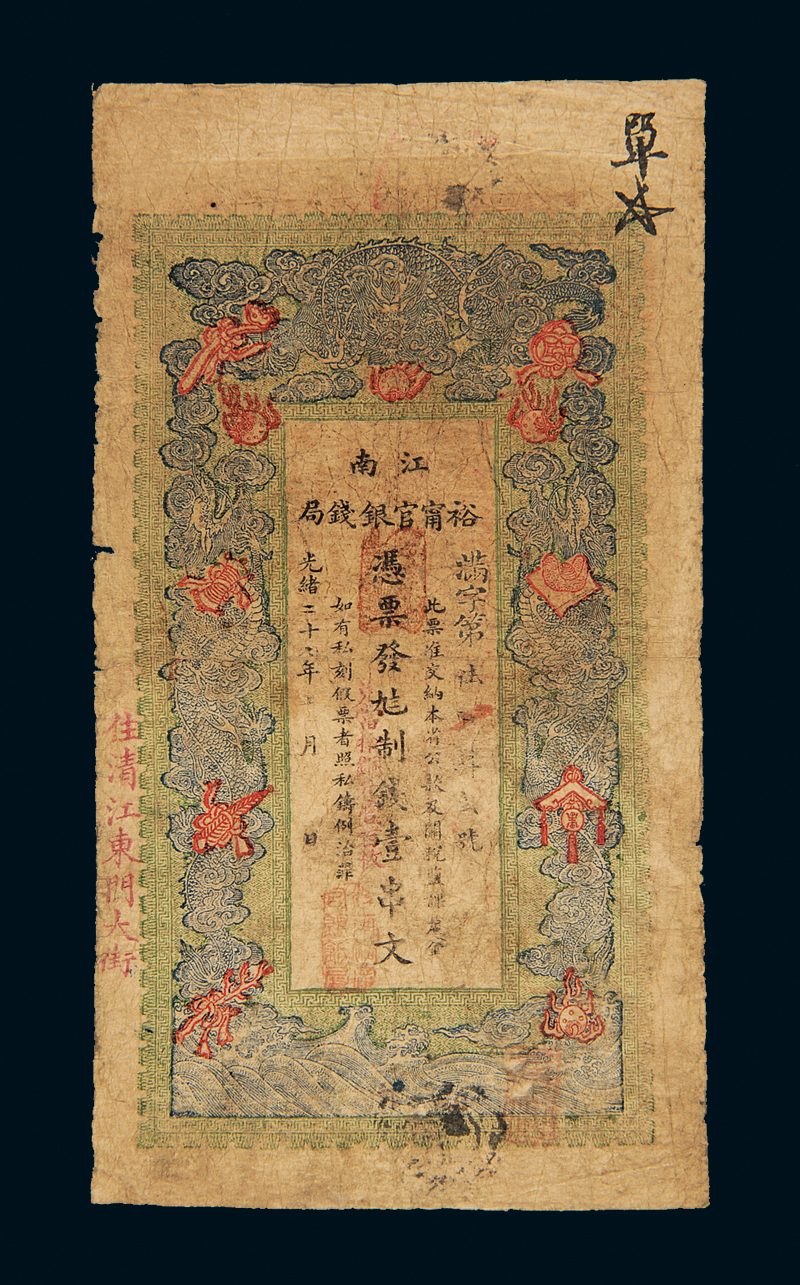 單
江南
裕甯官銀錢局
滿字第
號
此票准交納本省公款及關稅鹽課釐金
憑票發足制錢壹串文
如有私刻假票者照私鑄例治罪
光緒二十 年 月 日
住清江東門大街